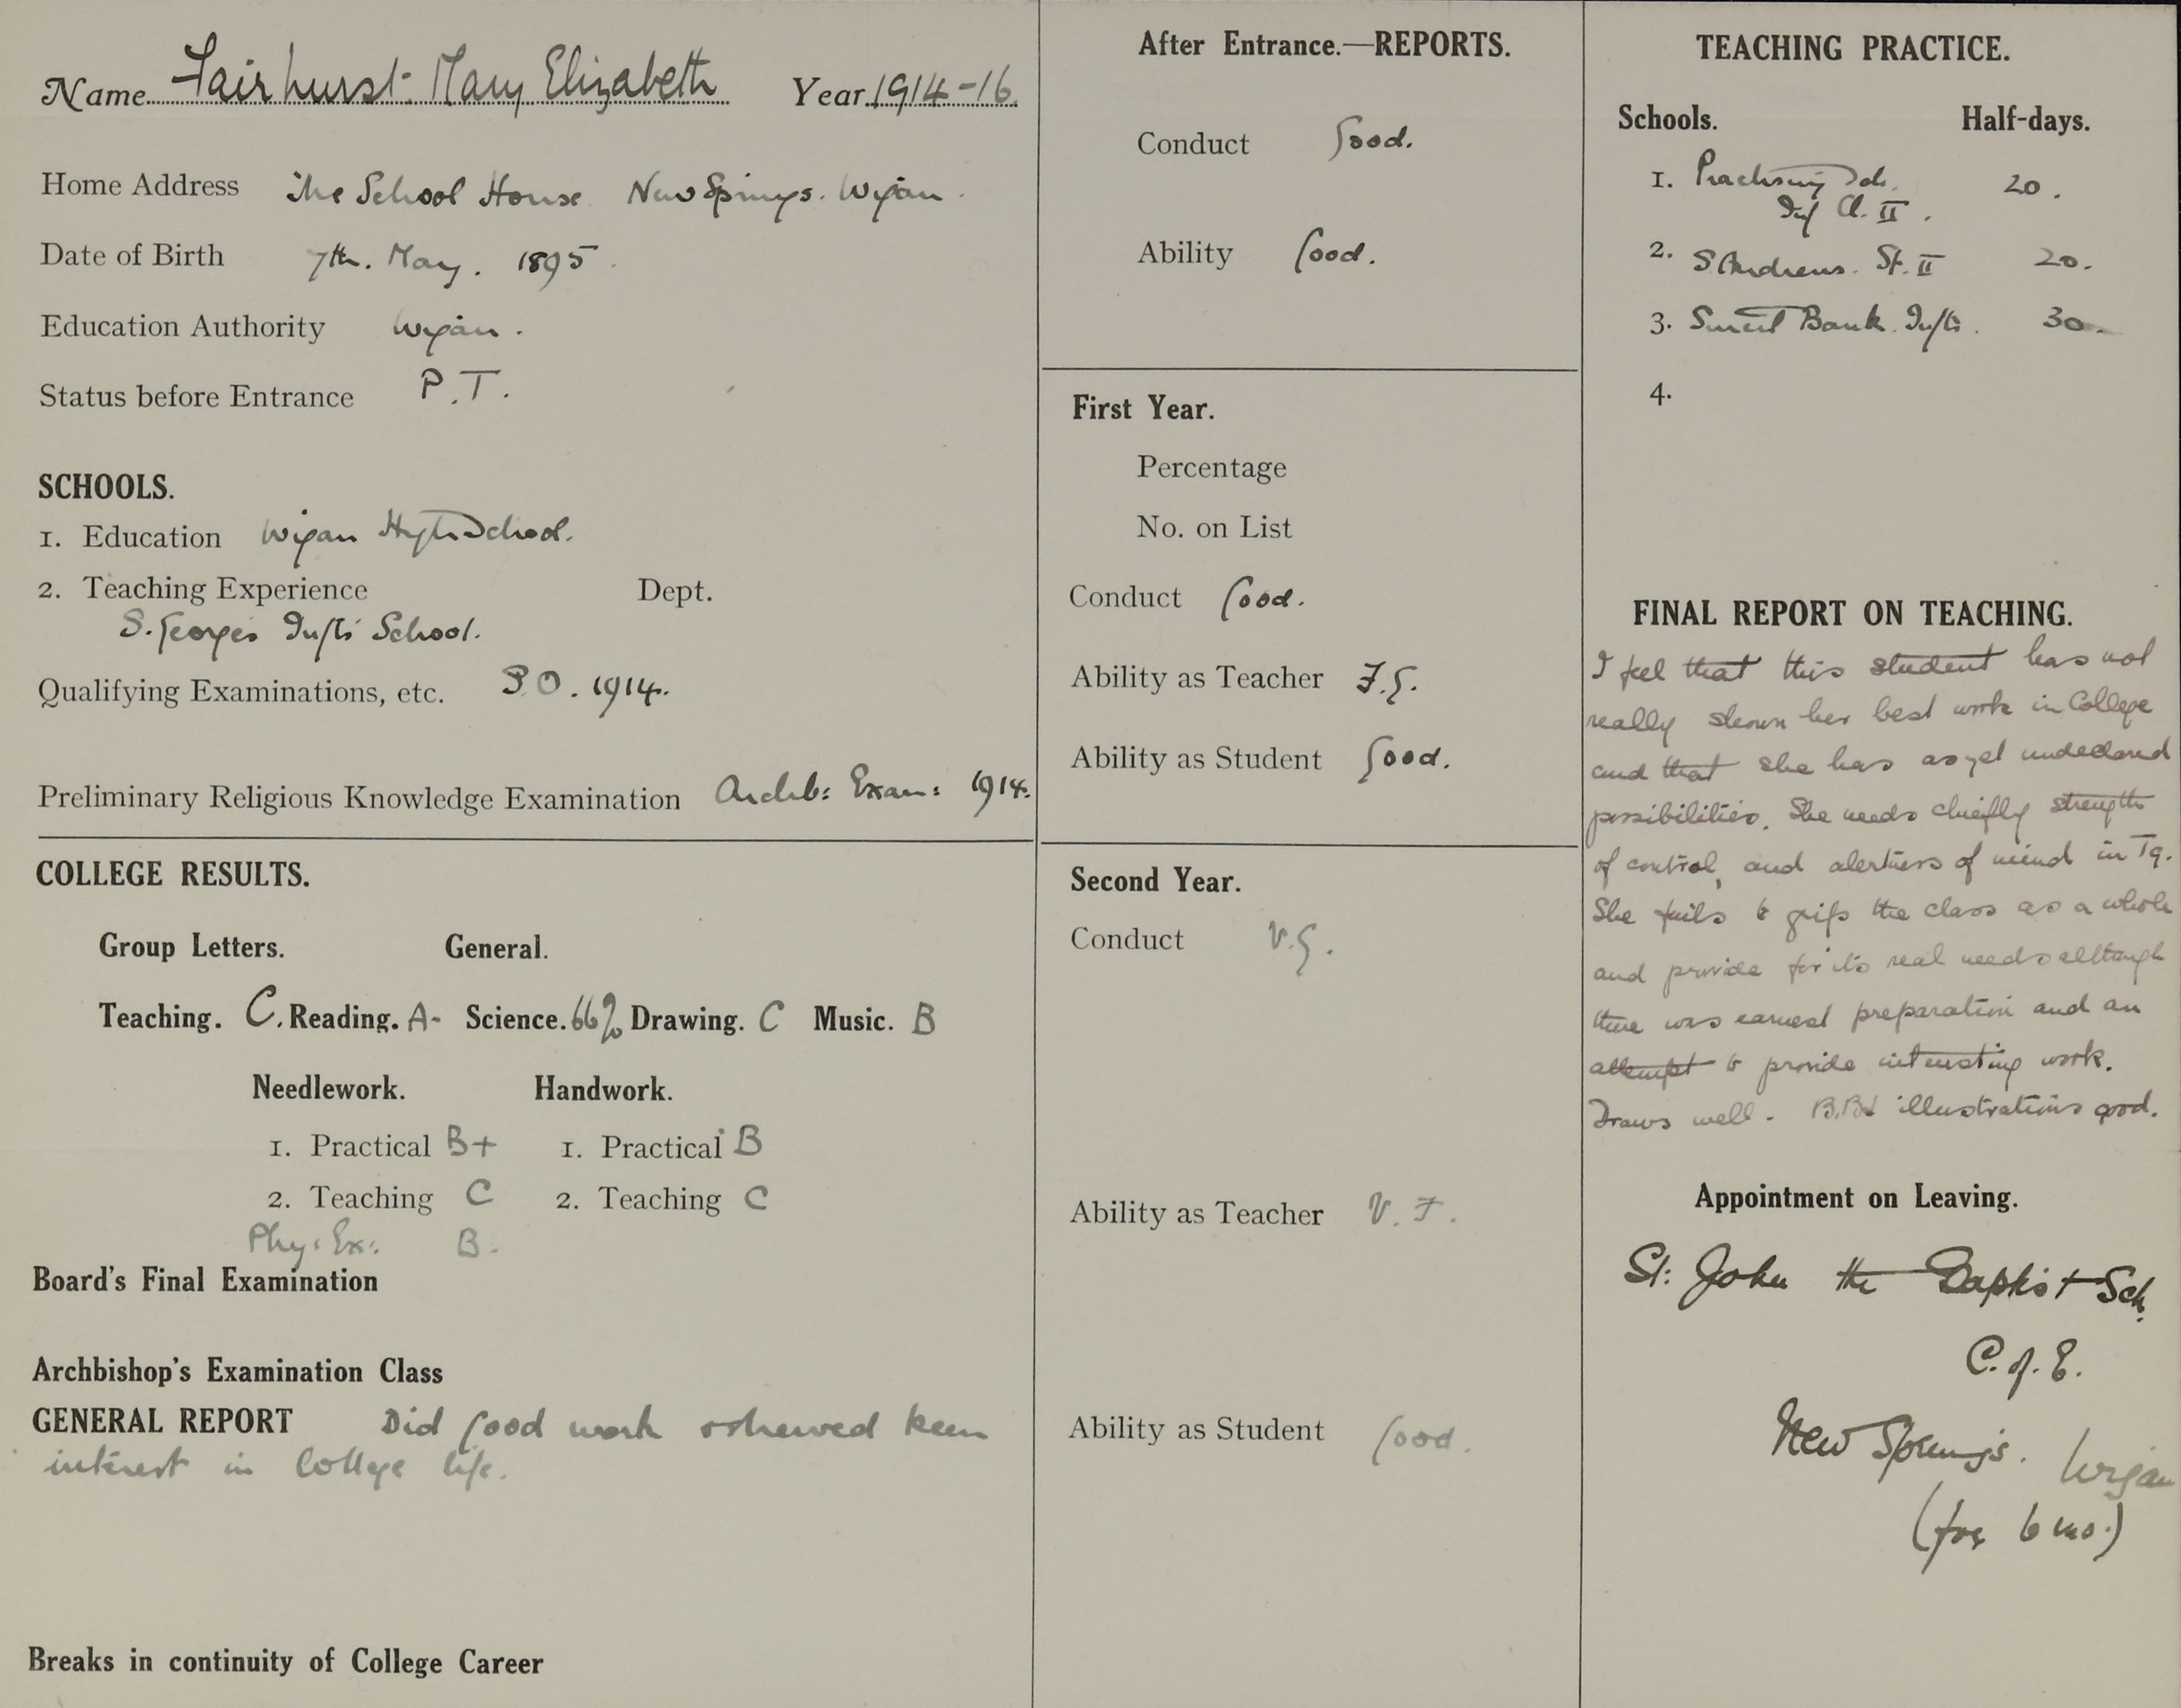 Name Fairhurst: Mary Elizabeth Year 1914-16.
Home Address The School House. New Springs. Wigan.
Date of Birth 7th. May. 1895.
Education Authority Wigan.
Status before Entrance P.T.
SCHOOLS.
1. Education Wigan High School.
2. Teaching Experience Dept.
S. George's Infts' School.
Qualifying Examinations, etc. P.O. 1914.
Preliminary Religious Knowledge Examination Archb: Exam: 1914.
COLLEGE RESULTS.
Group Letters. General.
Teaching. C. Reading. A- Science. 66% Drawing. C Music. B
Needlework. Handwork.
1. Practical B+ 1. Practical B
2. Teaching C 2. Teaching C
Phy: Ex: B.
Board's Final Examination
Archbishop's Examination Class
GENERAL REPORT Did good work & shewed keen
interest in College life.
Breaks in continuity of College Career
After Entrance.—REPORTS.
Conduct Good.
Ability Good.
First Year.
Percentage
No. on List
Conduct Good.
Ability as Teacher F.G.
Ability as Student Good.
Second Year.
Conduct V.G.
Ability as Teacher V.F.
Ability as Student Good.
TEACHING PRACTICE.
Schools. Half-days.
1. Practising Sch. 20.
Inf Cl. II.
2. S Andrews. St. II 20.
3. Bank. Infts. 30.
4.
FINAL REPORT ON TEACHING.
I feel that this student has not
really shewn her best work in College
and that she has as yet undeclared
possibilities. She needs chiefly strength
of control, and alertness of mind in Tg.
She fails to grip the class as a whole
and provide for its real needs although
there was earnest preparation and an
attempt to provide interesting work.
Draws well. B.Bd illustrations good.
Appointment on Leaving.
St: John the Baptist Sch.
C. of. E.
New Springs. Wigan
(for 6 mo.)